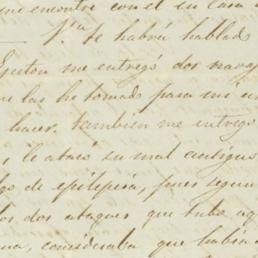 me encontré con el en casa
Ya. te habrá hablado
me entregó dos navaj
las he tomado para mi
hacer. tambien me entregó
le atacó su mal antiguo
de epilepsia, pues segun
los dos ataques que tubo
consideraba que habia